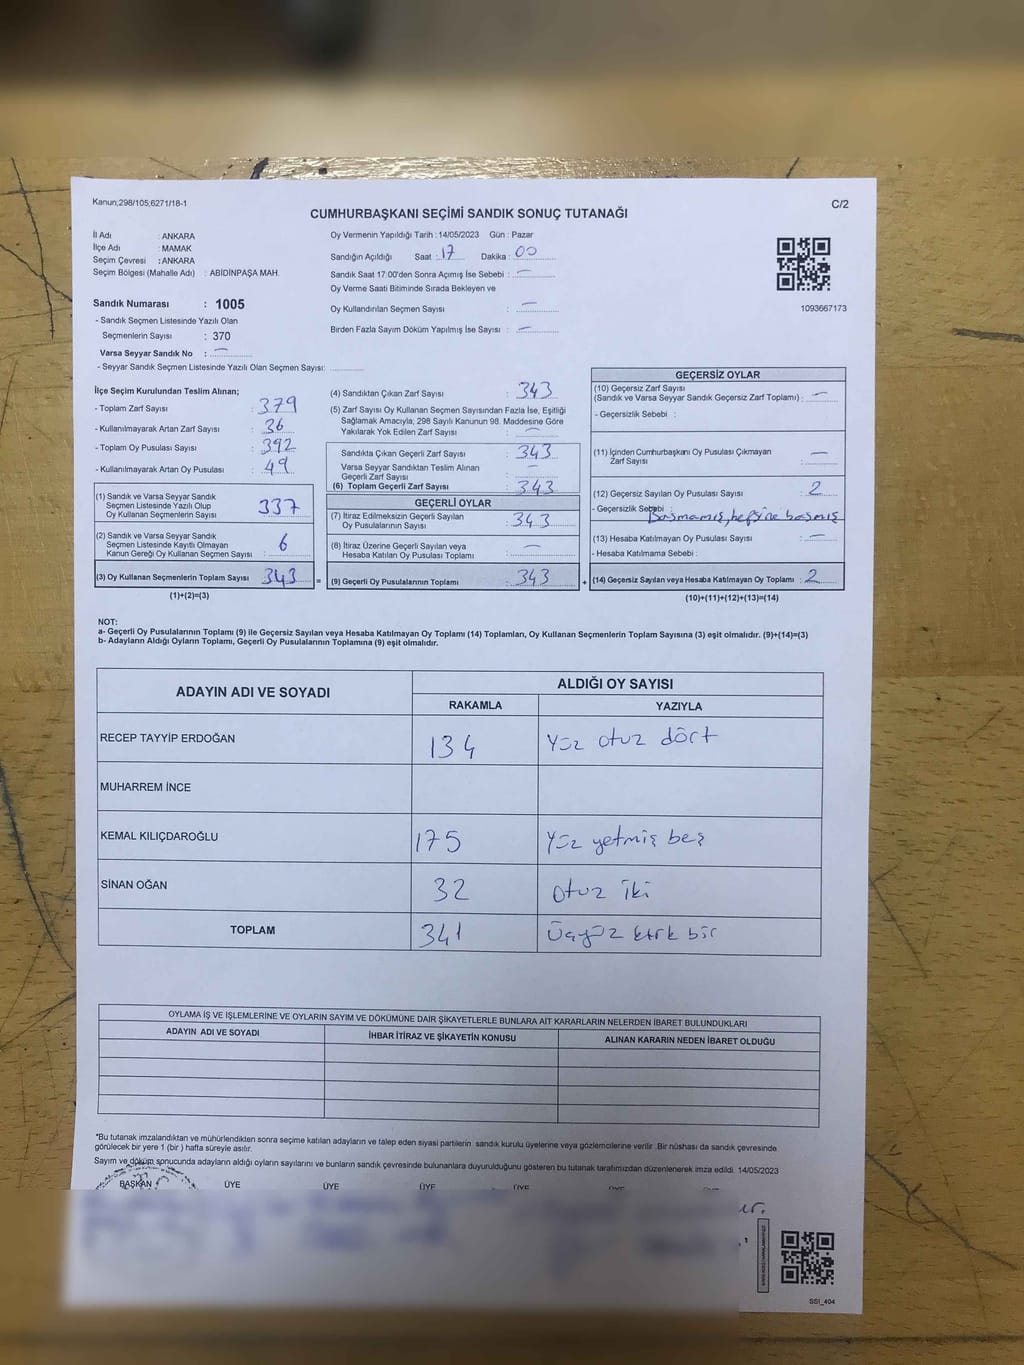 Kanun;298/105;6271/18-1
C/2
CUMHURBAŞKANI SEÇİMİ SANDIK SONUÇ TUTANAĞI
İl Adı : ANKARA
İlçe Adı : MAMAK
Seçim Çevresi : ANKARA
Seçim Bölgesi (Mahalle Adı) : ABİDİNPAŞA MAH.
Sandık Numarası : 1005
- Sandık Seçmen Listesinde Yazılı Olan
Seçmenlerin Sayısı : 370
Varsa Seyyar Sandık No : —
- Seyyar Sandık Seçmen Listesinde Yazılı Olan Seçmen Sayısı:
Oy Vermenin Yapıldığı Tarih : 14/05/2023 Gün : Pazar
Sandığın Açıldığı Saat : 17 Dakika : 00
Sandık Saat 17:00'den Sonra Açımış İse Sebebi : —
Oy Verme Saati Bitiminde Sırada Bekleyen ve
Oy Kullandırılan Seçmen Sayısı : —
Birden Fazla Sayım Döküm Yapılmış İse Sayısı : —
1093667173
İlçe Seçim Kurulundan Teslim Alınan;
- Toplam Zarf Sayısı : 379
- Kullanılmayarak Artan Zarf Sayısı : 36
- Toplam Oy Pusulası Sayısı : 392
- Kullanılmayarak Artan Oy Pusulası : 49
(1) Sandık ve Varsa Seyyar Sandık
Seçmen Listesinde Yazılı Olup
Oy Kullanan Seçmenlerin Sayısı : 337
(2) Sandık ve Varsa Seyyar Sandık
Seçmen Listesinde Kayıtlı Olmayan
Kanun Gereği Oy Kullanan Seçmen Sayısı : 6
(3) Oy Kullanan Seçmenlerin Toplam Sayısı : 343 =
(1)+(2)=(3)
(4) Sandıktan Çıkan Zarf Sayısı : 343
(5) Zarf Sayısı Oy Kullanan Seçmen Sayısından Fazla İse, Eşitliği
Sağlamak Amacıyla, 298 Sayılı Kanunun 98. Maddesine Göre
Yakılarak Yok Edilen Zarf Sayısı : —
Sandıkta Çıkan Geçerli Zarf Sayısı : 343
Varsa Seyyar Sandıktan Teslim Alınan
Geçerli Zarf Sayısı : —
(6) Toplam Geçerli Zarf Sayısı : 343
GEÇERLİ OYLAR
(7) İtiraz Edilmeksizin Geçerli Sayılan
Oy Pusulalarının Sayısı : 343
(8) İtiraz Üzerine Geçerli Sayılan veya
Hesaba Katılan Oy Pusulası Toplamı : —
(9) Geçerli Oy Pusulalarının Toplamı : 343 +
GEÇERSİZ OYLAR
(10) Geçersiz Zarf Sayısı
(Sandık ve Varsa Seyyar Sandık Geçersiz Zarf Toplamı) : —
- Geçersizlik Sebebi :
(11) İçinden Cumhurbaşkanı Oy Pusulası Çıkmayan
Zarf Sayısı : —
(12) Geçersiz Sayılan Oy Pusulası Sayısı : 2
- Geçersizlik Sebebi : Basmamış, hepsine basmış
(13) Hesaba Katılmayan Oy Pusulası Sayısı : —
- Hesaba Katılmama Sebebi :
(14) Geçersiz Sayılan veya Hesaba Katılmayan Oy Toplamı : 2
(10)+(11)+(12)+(13)=(14)
NOT:
a- Geçerli Oy Pusulalarının Toplamı (9) ile Geçersiz Sayılan veya Hesaba Katılmayan Oy Toplamı (14) Toplamları, Oy Kullanan Seçmenlerin Toplam Sayısına (3) eşit olmalıdır. (9)+(14)=(3)
b- Adayların Aldığı Oyların Toplamı, Geçerli Oy Pusulalarının Toplamına (9) eşit olmalıdır.
ADAYIN ADI VE SOYADI
ALDIĞI OY SAYISI
RAKAMLA YAZIYLA
RECEP TAYYİP ERDOĞAN 134 Yüz otuz dört
MUHARREM İNCE
KEMAL KILIÇDAROĞLU 175 Yüz yetmiş beş
SİNAN OĞAN 32 Otuz iki
TOPLAM 341 Üçyüz kırk bir
OYLAMA İŞ VE İŞLEMLERİNE VE OYLARIN SAYIM VE DÖKÜMÜNE DAİR ŞİKAYETLERLE BUNLARA AİT KARARLARIN NELERDEN İBARET BULUNDUKLARI
ADAYIN ADI VE SOYADI İHBAR İTİRAZ VE ŞİKAYETİN KONUSU ALINAN KARARIN NEDEN İBARET OLDUĞU
*Bu tutanak imzalandıktan ve mühürlendikten sonra seçime katılan adayların ve talep eden siyasi partilerin sandık kurulu üyelerine veya gözlemcilerine verilir. Bir nüshası da sandık çevresinde
görülecek bir yere 1 (bir) hafta süreyle asılır.
Sayım ve döküm sonucunda adayların aldığı oyların sayılarını ve bunların sandık çevresinde bulunanlara duyurulduğunu gösteren bu tutanak tarafımızdan düzenlenerek imza edildi. 14/05/2023
BAŞKAN ÜYE ÜYE ÜYE ÜYE
SSİ_404